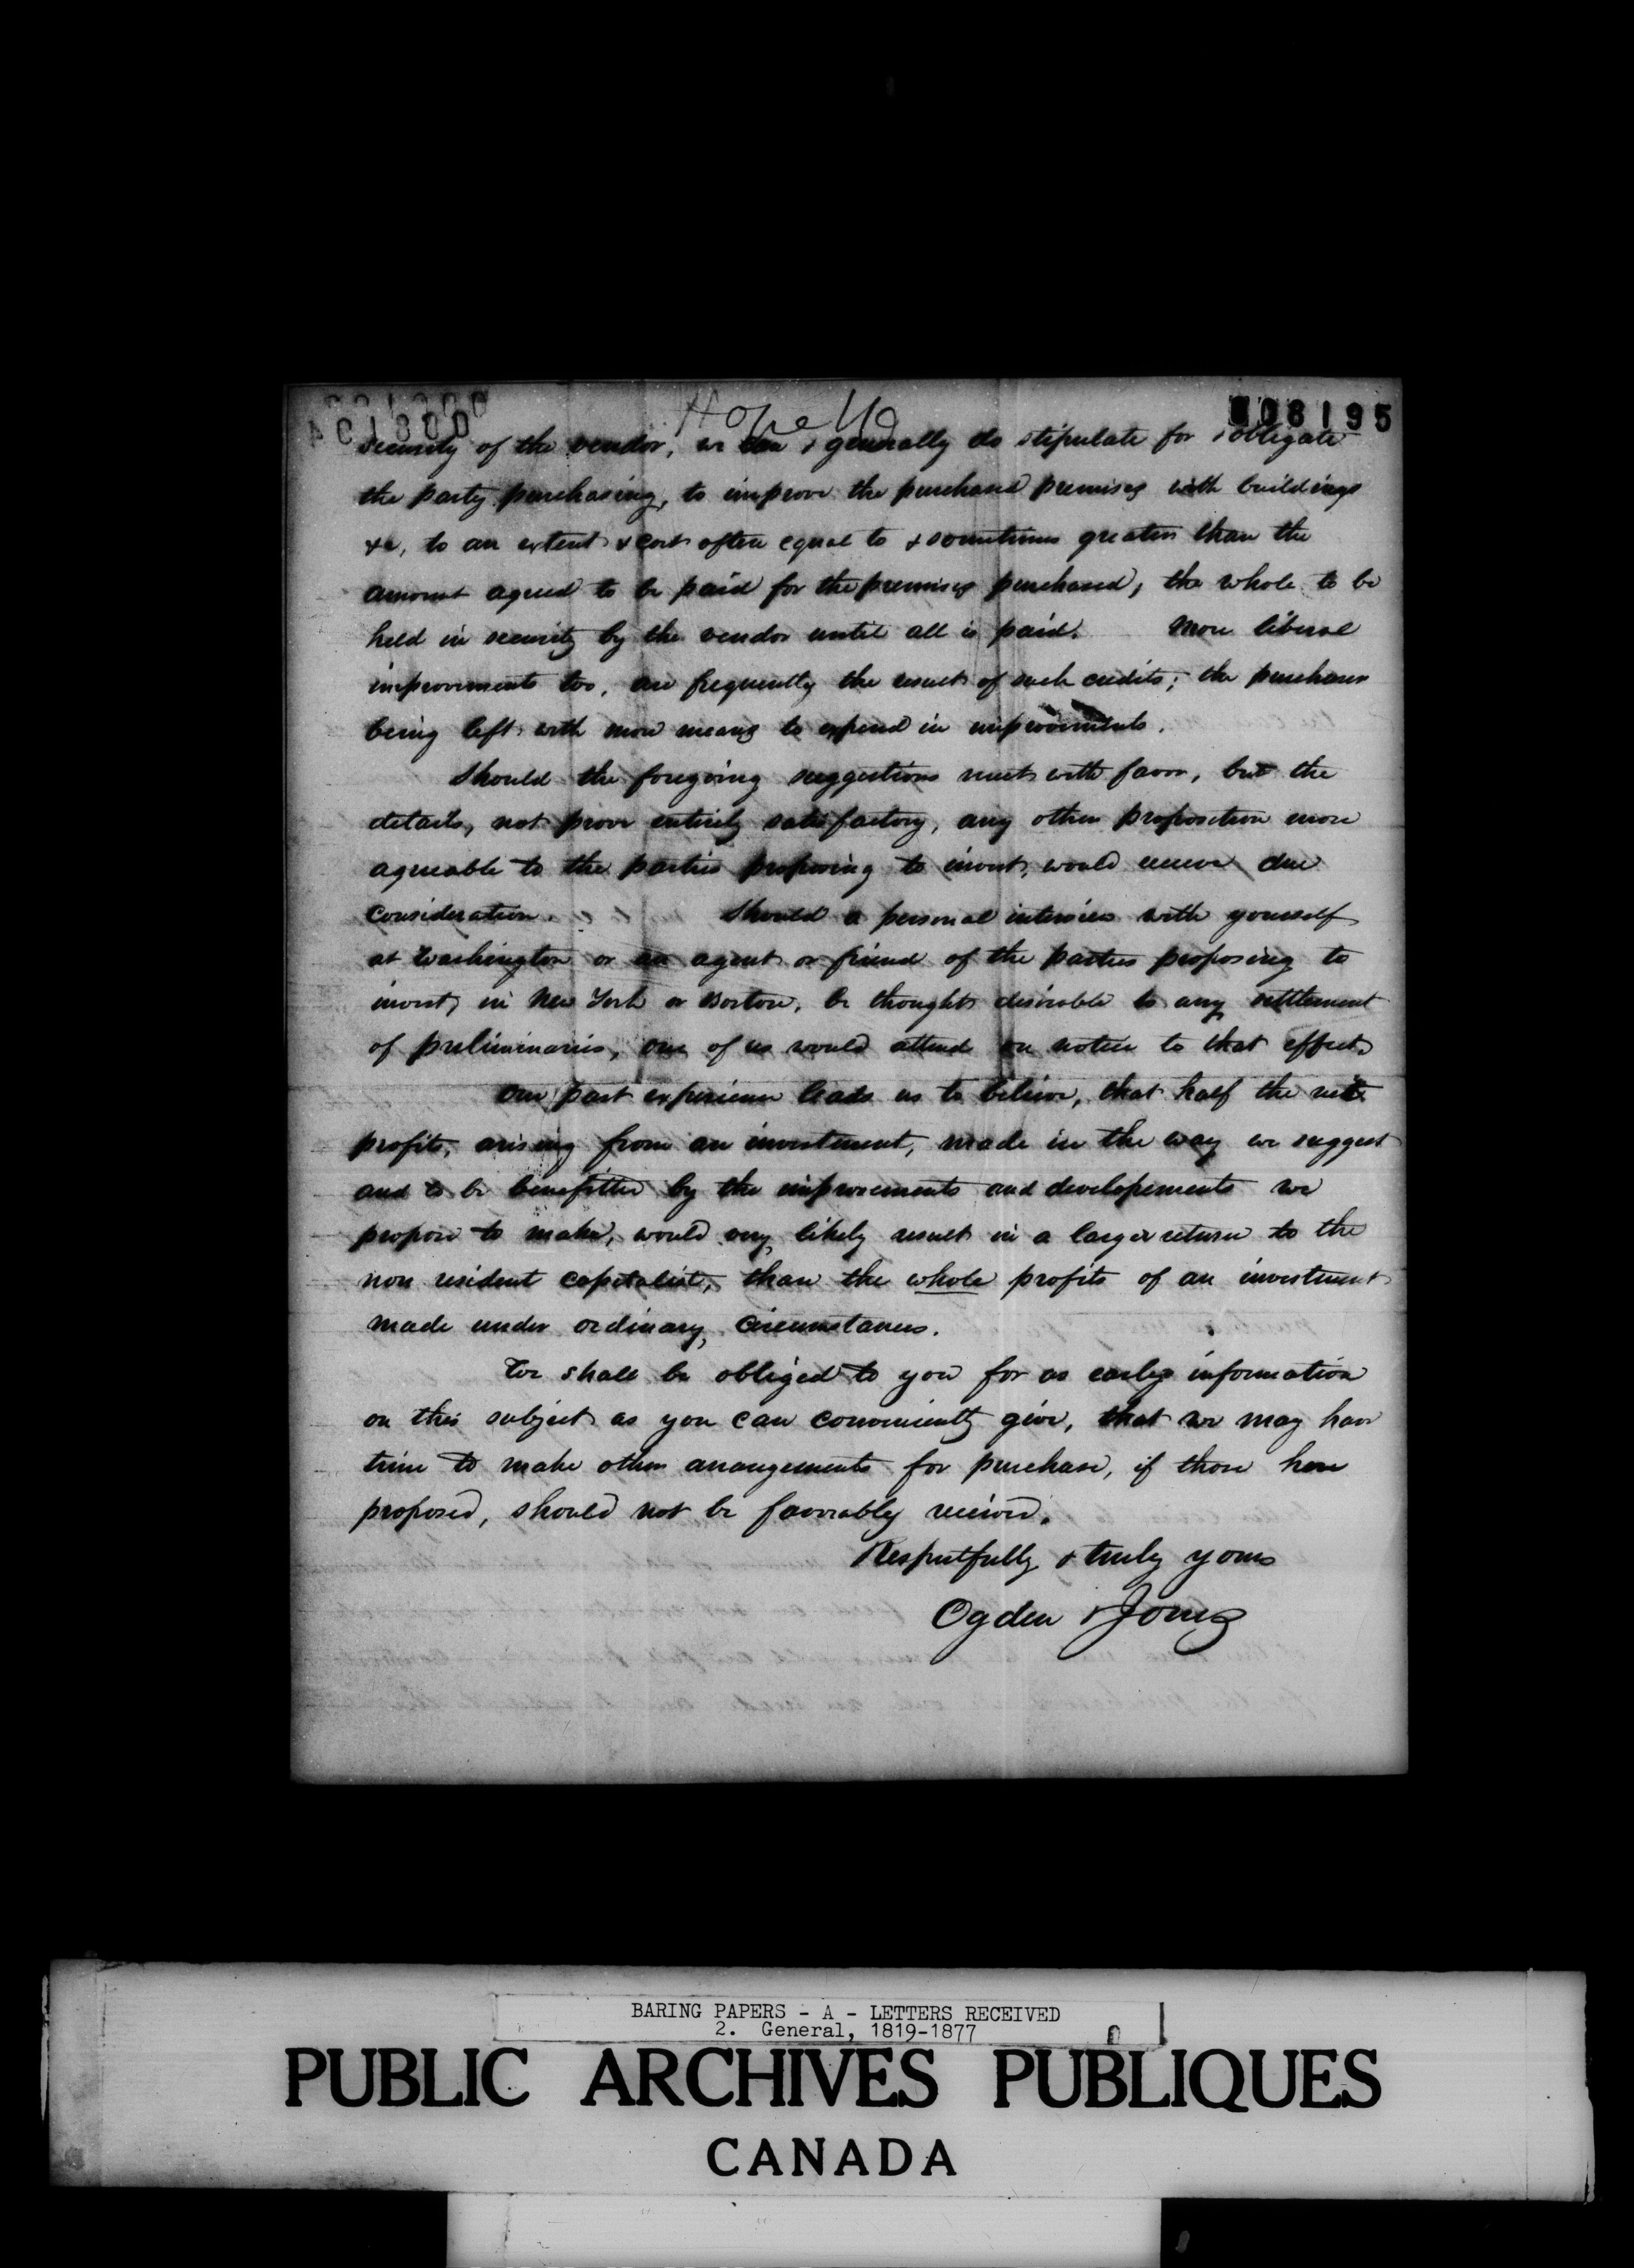 008195
security of the vendor, we can & generally do stipulate for & obligate
the party purchasing, to improve the purchased premises with buildings
&c, to an extent & cost often equal to & sometimes greater than the
amount agreed to be paid for the premises purchased; the whole to be
held in security by the vendor until all is paid. More liberal
improvements too, are frequently the result of such credits; the purchaser
being left with more means to expend in improvements.
Should the foregoing suggestions meet with favor, but the
details, not prove entirely satisfactory, any other proposition more
agreeable to the parties proposing to invest, would receive due
consideration. Should a personal interview with yourself
at Washington or an agent or friend of the parties proposing to
invest, in New York or Boston, be thought desirable to any settlement
of preliminaries, one of us would attend on notice to that effect.
Our past experience leads us to believe, that half the nett
profits, arising from an investment, made in the way we suggest
and to be benefitted by the improvements and developements we
propose to make, would very likely result in a larger return to the
non resident capitalist, than the whole profits of an investment
made under ordinary circumstances.
We shall be obliged to you for as early information
on this subject as you can conveniently give, that we may have
time to make other arrangements for purchase, if those here
proposed, should not be favorably received.
Respectfully & truly yours
Ogden & Jones
BARING PAPERS - A - LETTERS RECEIVED
2. General, 1819-1877
PUBLIC ARCHIVES PUBLIQUES
CANADA